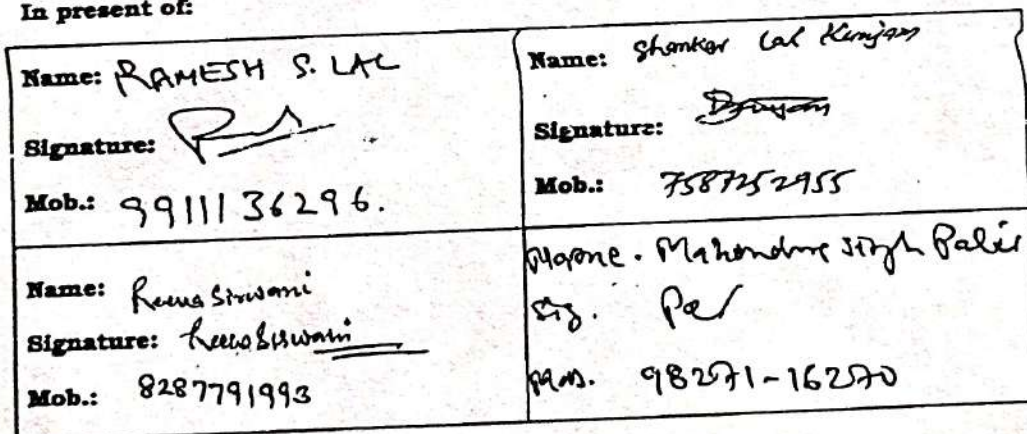 In present of:
Name: RAMESH S. LAL
Signature:
Mob.: 9911136296.
Name: Shankar Lal Kunjam
Signature:
Mob.: 7587252955
Name: Reena Sirwani
Signature: Reena Sirwani
Mob.: 8287791993
Name. Mahendra Singh
Sig.
Mob. 98271-16270